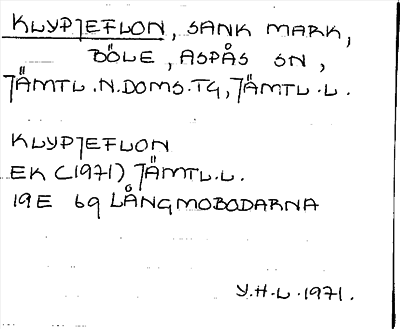 KLYPJEFLON, SANK MARK,
BÖLE, ASPÅS SN,
JÄMTL.N.DOMS.TG, JÄMTL.L.
KLYPJEFLON
EK (1971) JÄMTL.L.
19E 6g LÅNGMOBODARNA
Y.H-L.1971.